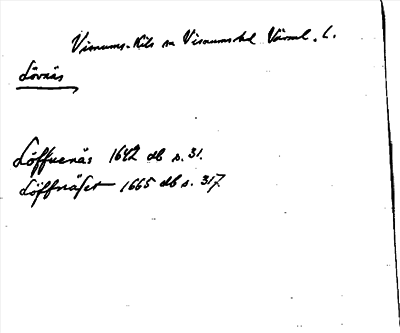 Visnums-Kils sn Visnums hd Värml. l.
Lövnäs
Löffuenäs 1642 db s. 31.
Löffnäset 1665 db s. 317.